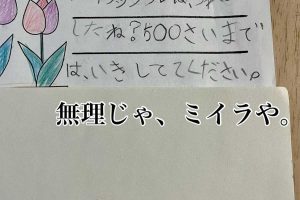 したね?500さいまで
は、いきしててください。
無理じゃ、ミイラや。